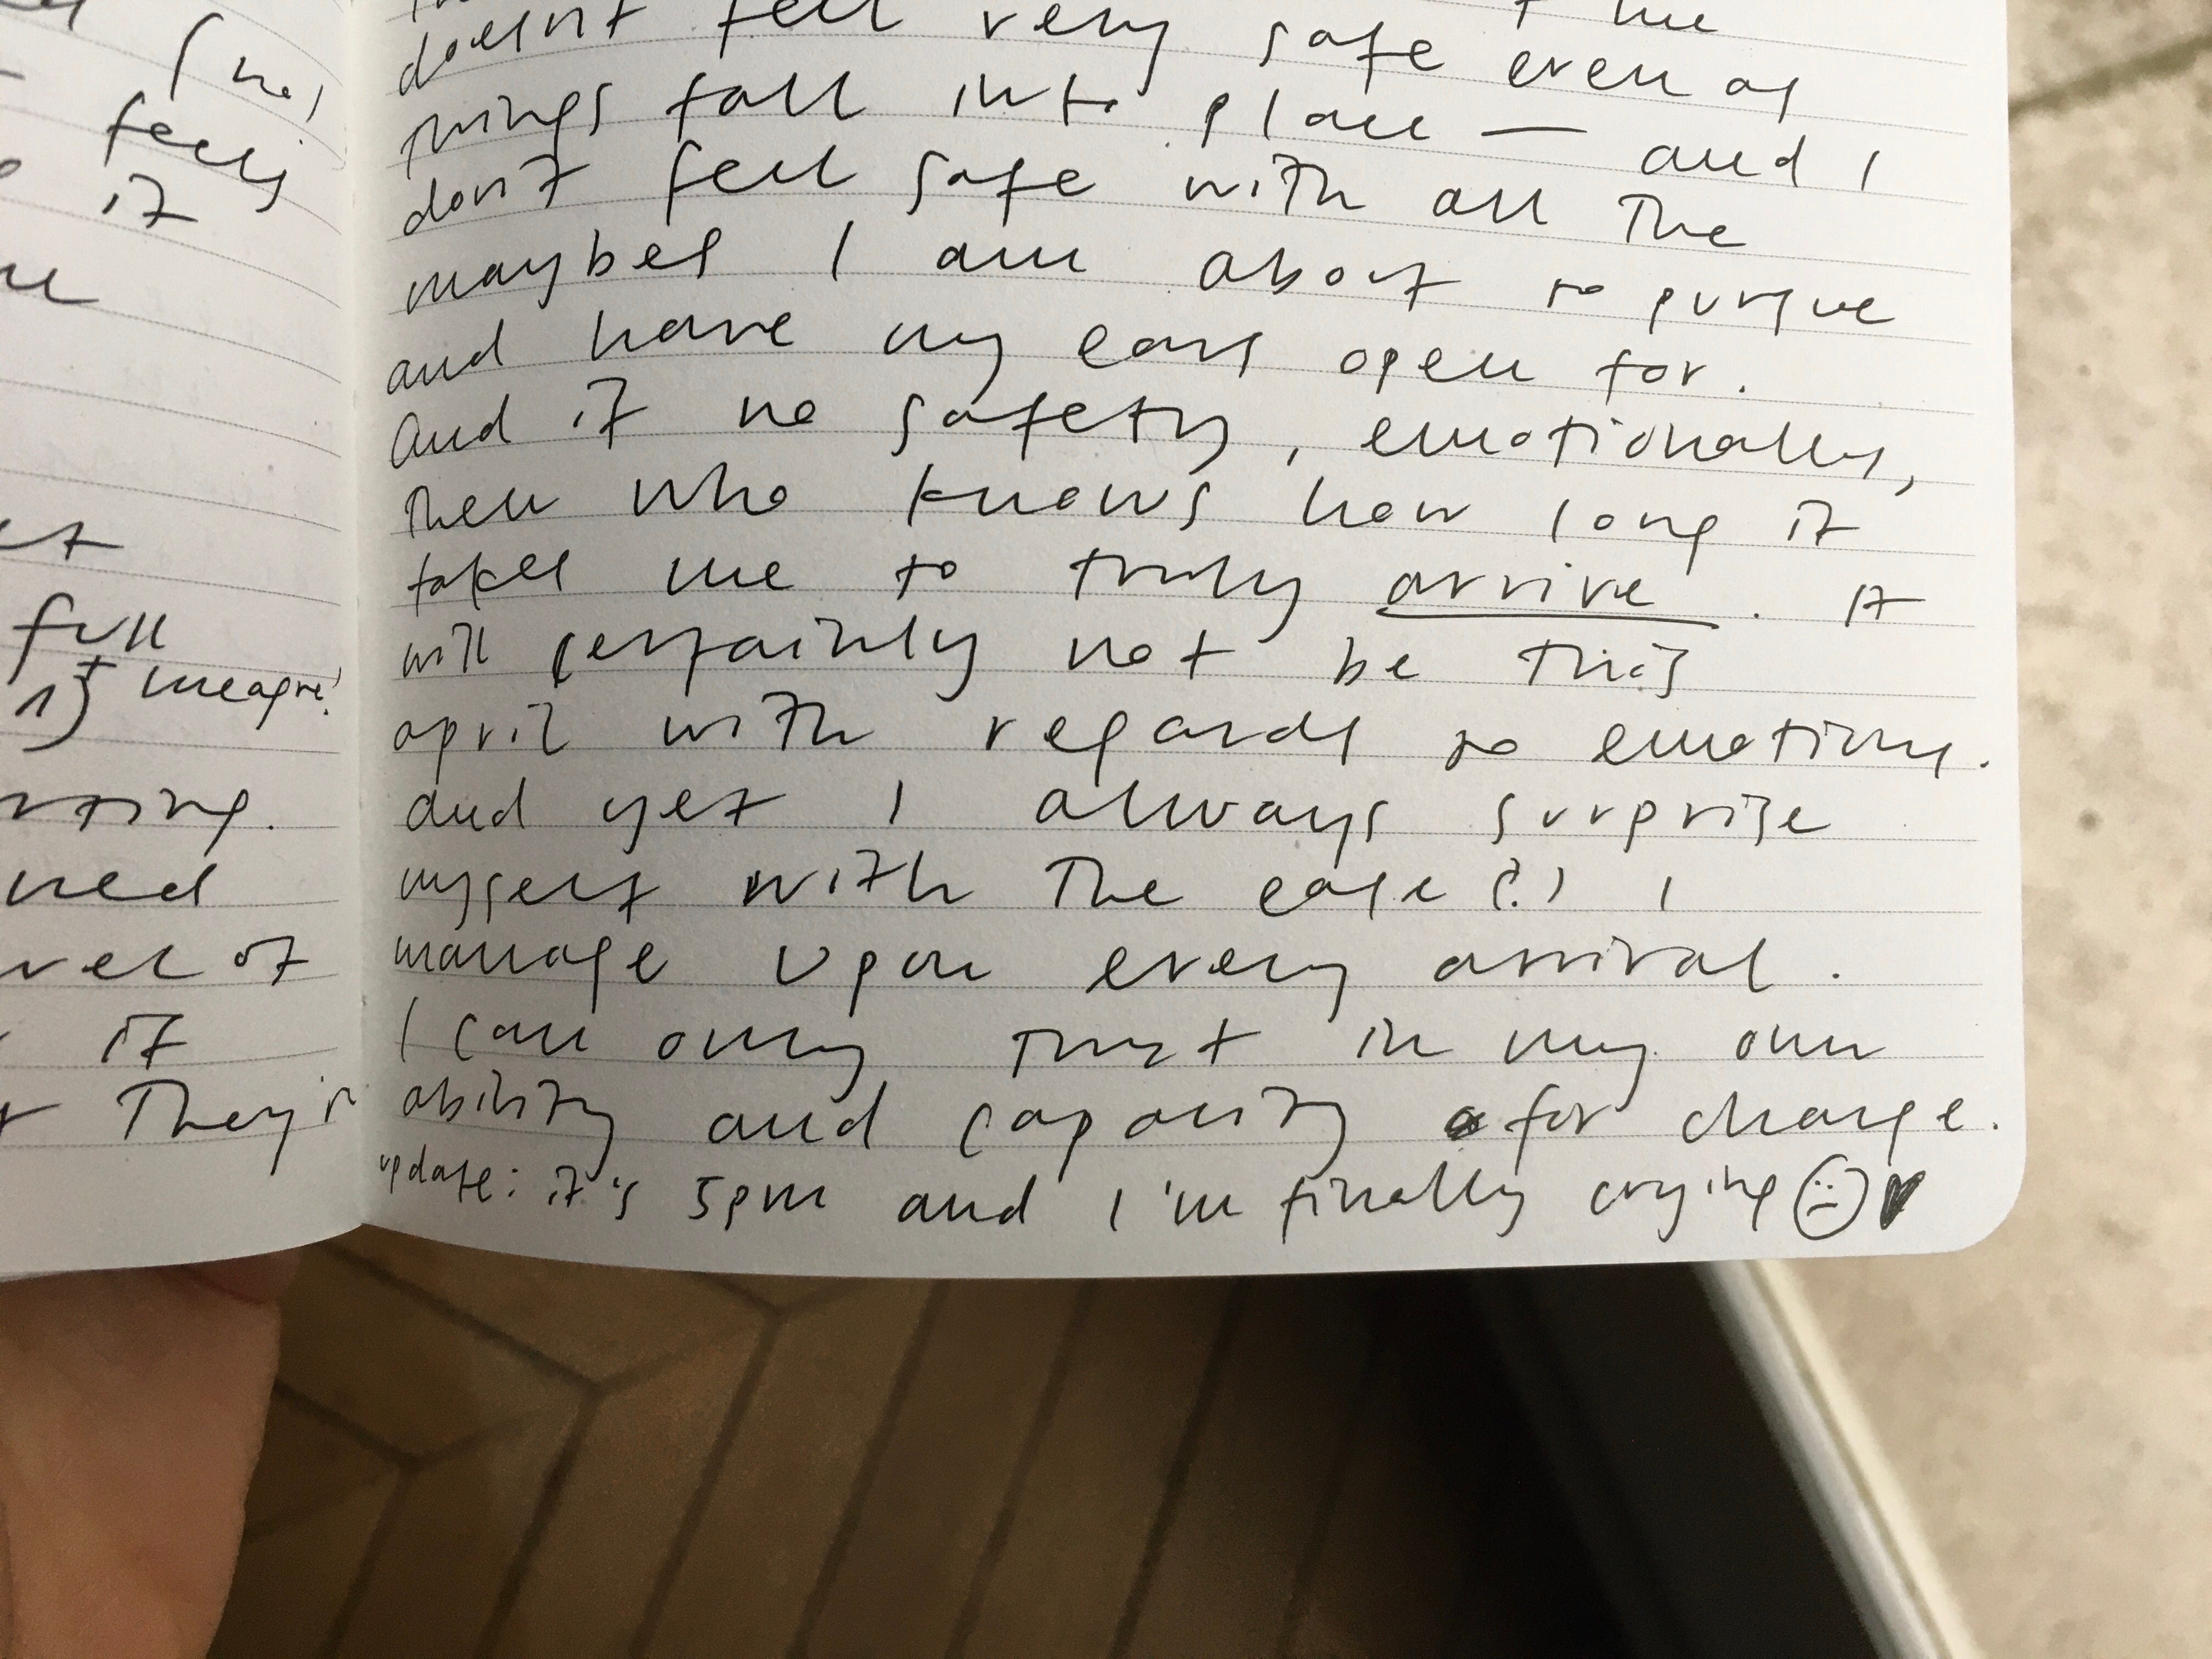 (no)
feels
it
full
15t meagre!
ned
it
They'r
doesn't feel very safe even as
things fall into place — and I
don't feel safe with all the
maybes I am about to pursue
and have my ears open for.
And if no safety, emotionally,
then who knows how long it
takes me to truly arrive. It
will certainly not be this
april with regards to emotions.
and yet I always surprise
myself with the ease (?) I
manage upon every arrival.
I can only trust in my own
ability and capacity for change.
update: it's 5pm and I'm finally crying